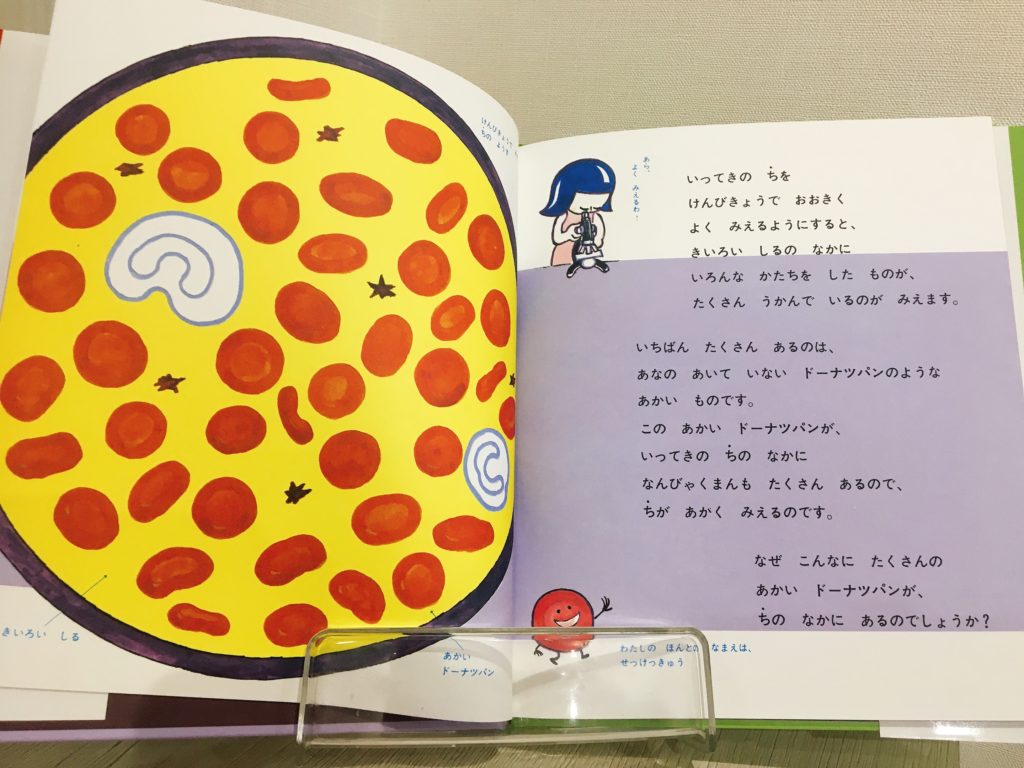 けんびきょうで
ちの ようす
きいろい しる
あかい
ドーナツパン
あら、
よく みえるわ！
いってきの ちを
けんびきょうで おおきく
よく みえるようにすると、
きいろい しるの なかに
いろんな かたちを した ものが、
たくさん うかんで いるのが みえます。
いちばん たくさん あるのは、
あなの あいて いない ドーナツパンのような
あかい ものです。
この あかい ドーナツパンが、
いってきの ちの なかに
なんびゃくまんも たくさん あるので、
ちが あかく みえるのです。
なぜ こんなに たくさんの
あかい ドーナツパンが、
ちの なかに あるのでしょうか？
わたしの ほんとの なまえは、
せっけっきゅう